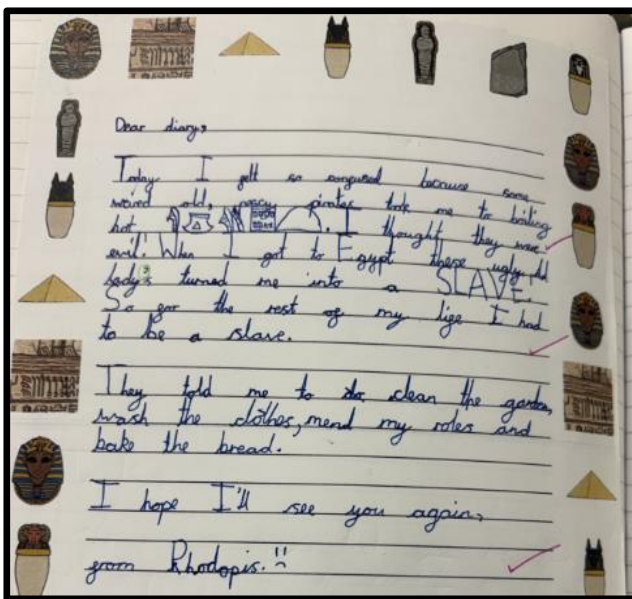 Dear diary,
Today I felt so confused because some
weird old, pirates took me to boiling
hot . I thought they were
evil! When I got to Egypt these ugly, old
lady's turned me into a SLAVE.
So for the rest of my life I had
to be a slave.
They told me to clean the garden,
wash the clothes, mend my roles and
bake the bread.
I hope I'll see you again,
from Rhodopis.